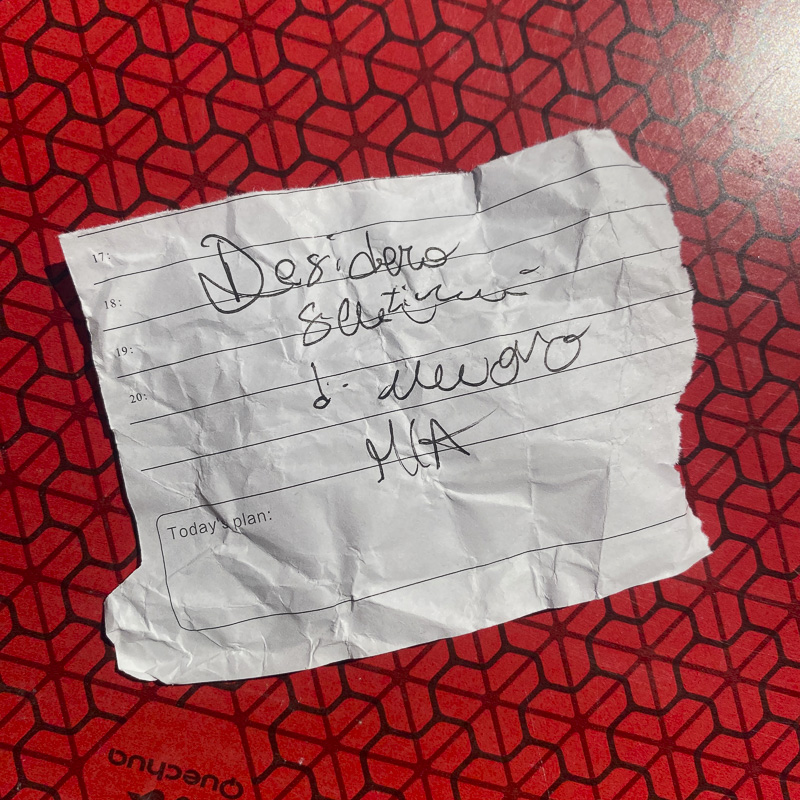 17:
Desidero
18:
sentirmi
19:
di nuovo
20:
MIA
Today's plan:
Quechua